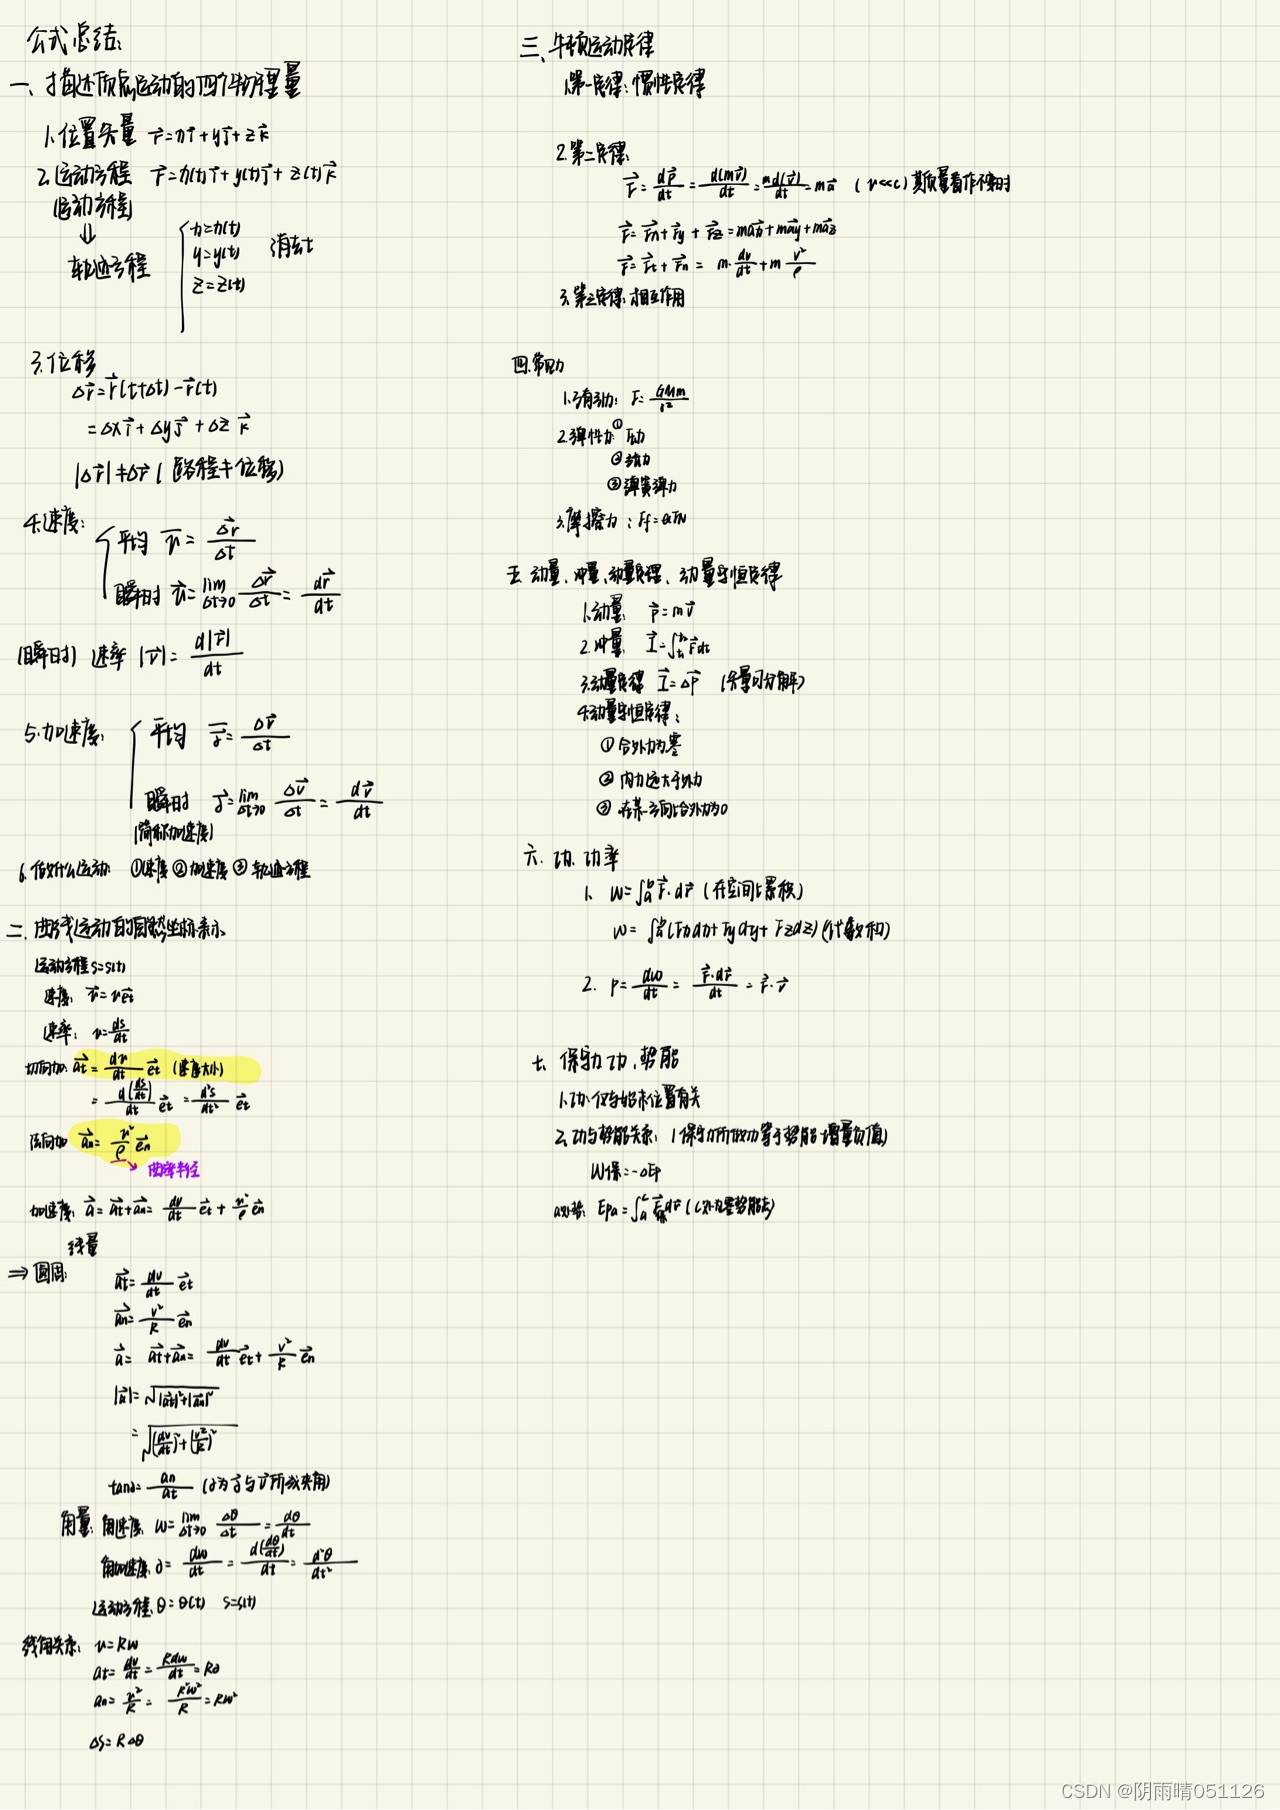 公式总结:
一、描述质点运动的四个物理量
1.位置矢量 r⃗=xi⃗+yj⃗+zk⃗
2.运动方程 r⃗=x(t)i⃗+y(t)j⃗+z(t)k⃗
(运动方程)
⇓
轨迹方程
x=x(t)
y=y(t) 消去t
z=z(t)
3.位移
Δr⃗=r⃗(t+Δt)-r⃗(t)
=Δxi⃗+Δyj⃗+Δzk⃗
|Δr⃗|≠Δr (路程≠位移)
4.速度:
平均 v̄=Δr⃗/Δt
瞬时 v⃗=lim Δt→0 Δr⃗/Δt=dr⃗/dt
(瞬时) 速率 |v⃗|=d|r⃗|/dt
5.加速度:
平均 ā=Δv⃗/Δt
瞬时 a⃗=lim Δt→0 Δv⃗/Δt=dv⃗/dt
(简称加速度)
6.做什么运动: ①速度 ②加速度 ③轨迹方程
二.曲线运动的自然坐标系
运动方程 s=s(t)
速度: v⃗=ve⃗t
速率: v=ds/dt
切向加: a⃗t=dv/dt e⃗t (速度大小)
=d(ds/dt)/dt e⃗t=d²s/dt² e⃗t
法向加 a⃗n=v²/ρ e⃗n
曲率半径
加速度: a⃗=a⃗t+a⃗n=dv/dt e⃗t+v²/ρ e⃗n
线量
⇒圆周:
a⃗t=dv/dt e⃗t
a⃗n=v²/R e⃗n
a⃗=a⃗t+a⃗n=dv/dt e⃗t+v²/R e⃗n
|a⃗|=√(|a⃗t|²+|a⃗n|²)
=√((dv/dt)²+(v²/R)²)
tanα=an/at (α为a⃗与v⃗所成夹角)
角量: 角速度: ω=lim Δt→0 Δθ/Δt=dθ/dt
角加速度: α=dω/dt=d(dθ/dt)/dt=d²θ/dt²
运动方程: θ=θ(t) s=s(t)
线角关系: v=Rω
at=dv/dt=Rdω/dt=Rα
an=v²/R=R²ω²/R=Rω²
Δs=RΔθ
三、牛顿运动定律
1.第一定律: 惯性定律
2.第二定律:
F⃗=dp⃗/dt=d(mv⃗)/dt=md(v⃗)/dt=ma⃗ (v<<c) 其质量看作不变时
F⃗=F⃗x+F⃗y+F⃗z=ma⃗x+ma⃗y+ma⃗z
F⃗=F⃗t+F⃗n=m·dv/dt+m v²/ρ
3.第三定律: 相互作用
四.常见力
1.万有引力: F=GMm/r²
2.弹性力: ①压力
②拉力
③弹簧弹力
3.摩擦力: Ff=μFN
五.动量、冲量、动量定理、动量守恒定律
1.动量: p⃗=mv⃗
2.冲量: I⃗=∫F⃗dt
3.动量定律 I⃗=Δp⃗ (矢量可分解)
4.动量守恒定律:
①合外力为零
②内力远大于外力
③在某一方向上合外力为0
六.功.功率
1. W=∫ₐᵇF⃗·dr⃗ (在空间上累积)
W=∫ₐᵇ(Fxdx+Fydy+Fzdz) (代数和)
2. P=dw/dt=F⃗·dr⃗/dt=F⃗·v⃗
七.保守力功、势能
1.功: 仅与始末位置有关
2.功与势能关系: (保守力所做功等于势能增量负值)
W保=-ΔEp
a处势: Epa=∫ₐᶜF⃗保dr⃗ (c处为零势能点)
CSDN @阴雨晴051126